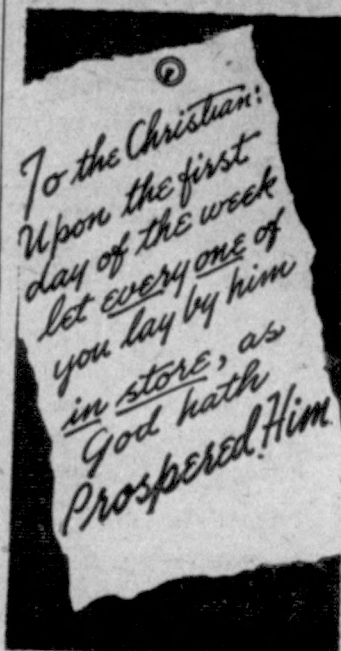 To the Christian:
Upon the first
day of the week
let every one of
you lay by him
in store, as
God hath
Prospered Him